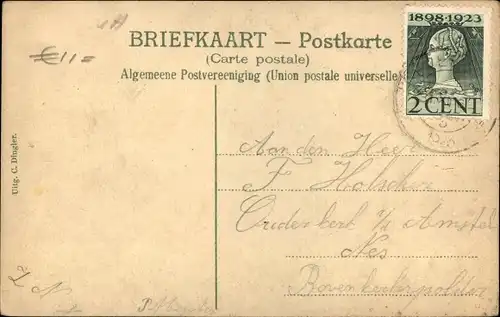 1898-1923
2 CENT
€11=
BRIEFKAART – Postkarte
(Carte postale)
Algemeene Postvereeniging (Union postale universelle)
Uitg. C. Dingler.
Aan den Heer
F Holscher
Ouderkerk a/d Amstel
Nes
Bovenkerkerpolder